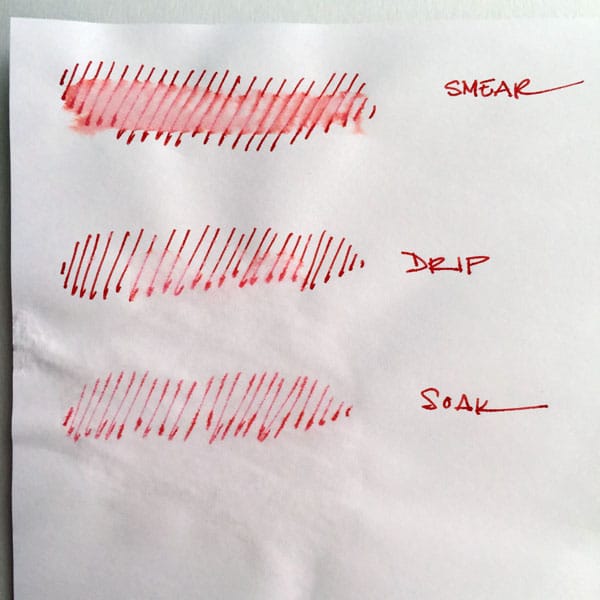 SMEAR
DRIP
SOAK